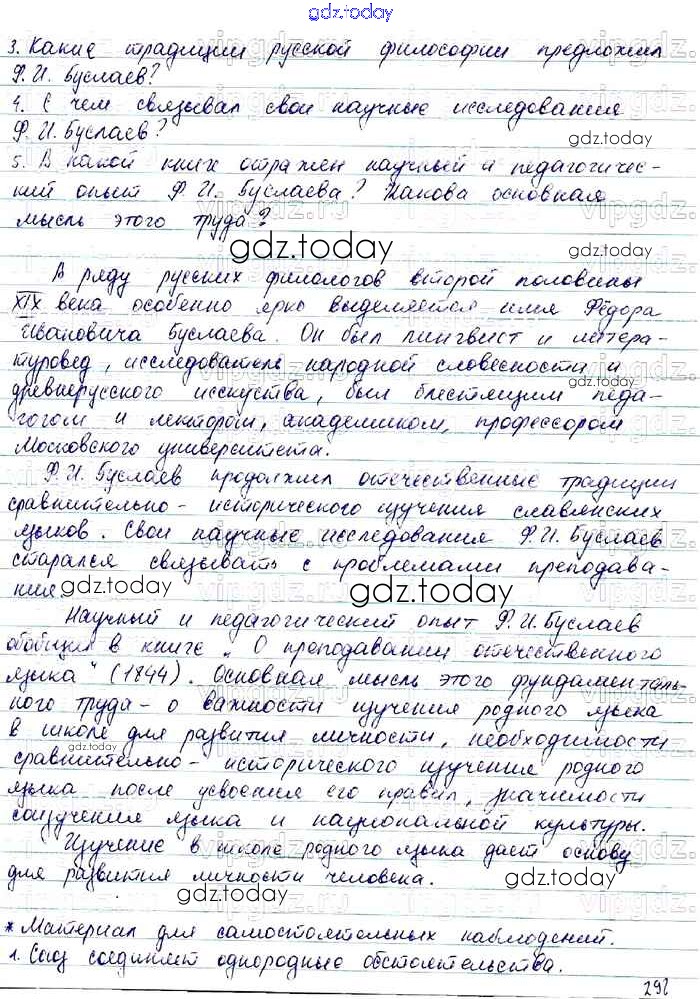 gdz.today
3. Какие традиции русской философии предложил
Ф.И. Буслаев?
4. С чем связывал свои научные исследования
Ф.И. Буслаев?
gdz.today
5. В какой книге отражен научный и педагогичес-
кий опыт Ф.И. Буслаева? Какова основная
мысль этого труда?
gdz.today
В ряду русских филологов второй половины
XIX века особенно ярко выделяется имя Фёдора
Ивановича Буслаева. Он был лингвист и литера-
туровед, исследователь народной словесности и
gdz.today
древнерусского исскуства, был блестящим педа-
гогом и лектором, академиком, профессором
Московского университета.
Ф.И. Буслаев продолжил отечественные традиции
сравнительно-исторического изучения славянских
языков. Свои научные исследования Ф.И. Буслаев
старался связывать с проблемами преподава-
ния
gdz.today
gdz.today
Научный и педагогический опыт Ф.И. Буслаев
обобщил в книге „О преподавании отечественного
языка" (1844). Основная мысль этого фундаменталь-
ного труда - о важности изучения родного языка
в школе для развития личности, необходимости
gdz.today
сравнительно-исторического изучения родного
языка после усвоения его правил, значимости
соизучения языка и национальной культуры.
Изучение в школе родного языка дает основу
для развития личности человека.
gdz.today
* Материал для самостоятельных наблюдений.
1. Союз соединяет однородные обстоятельства.
292